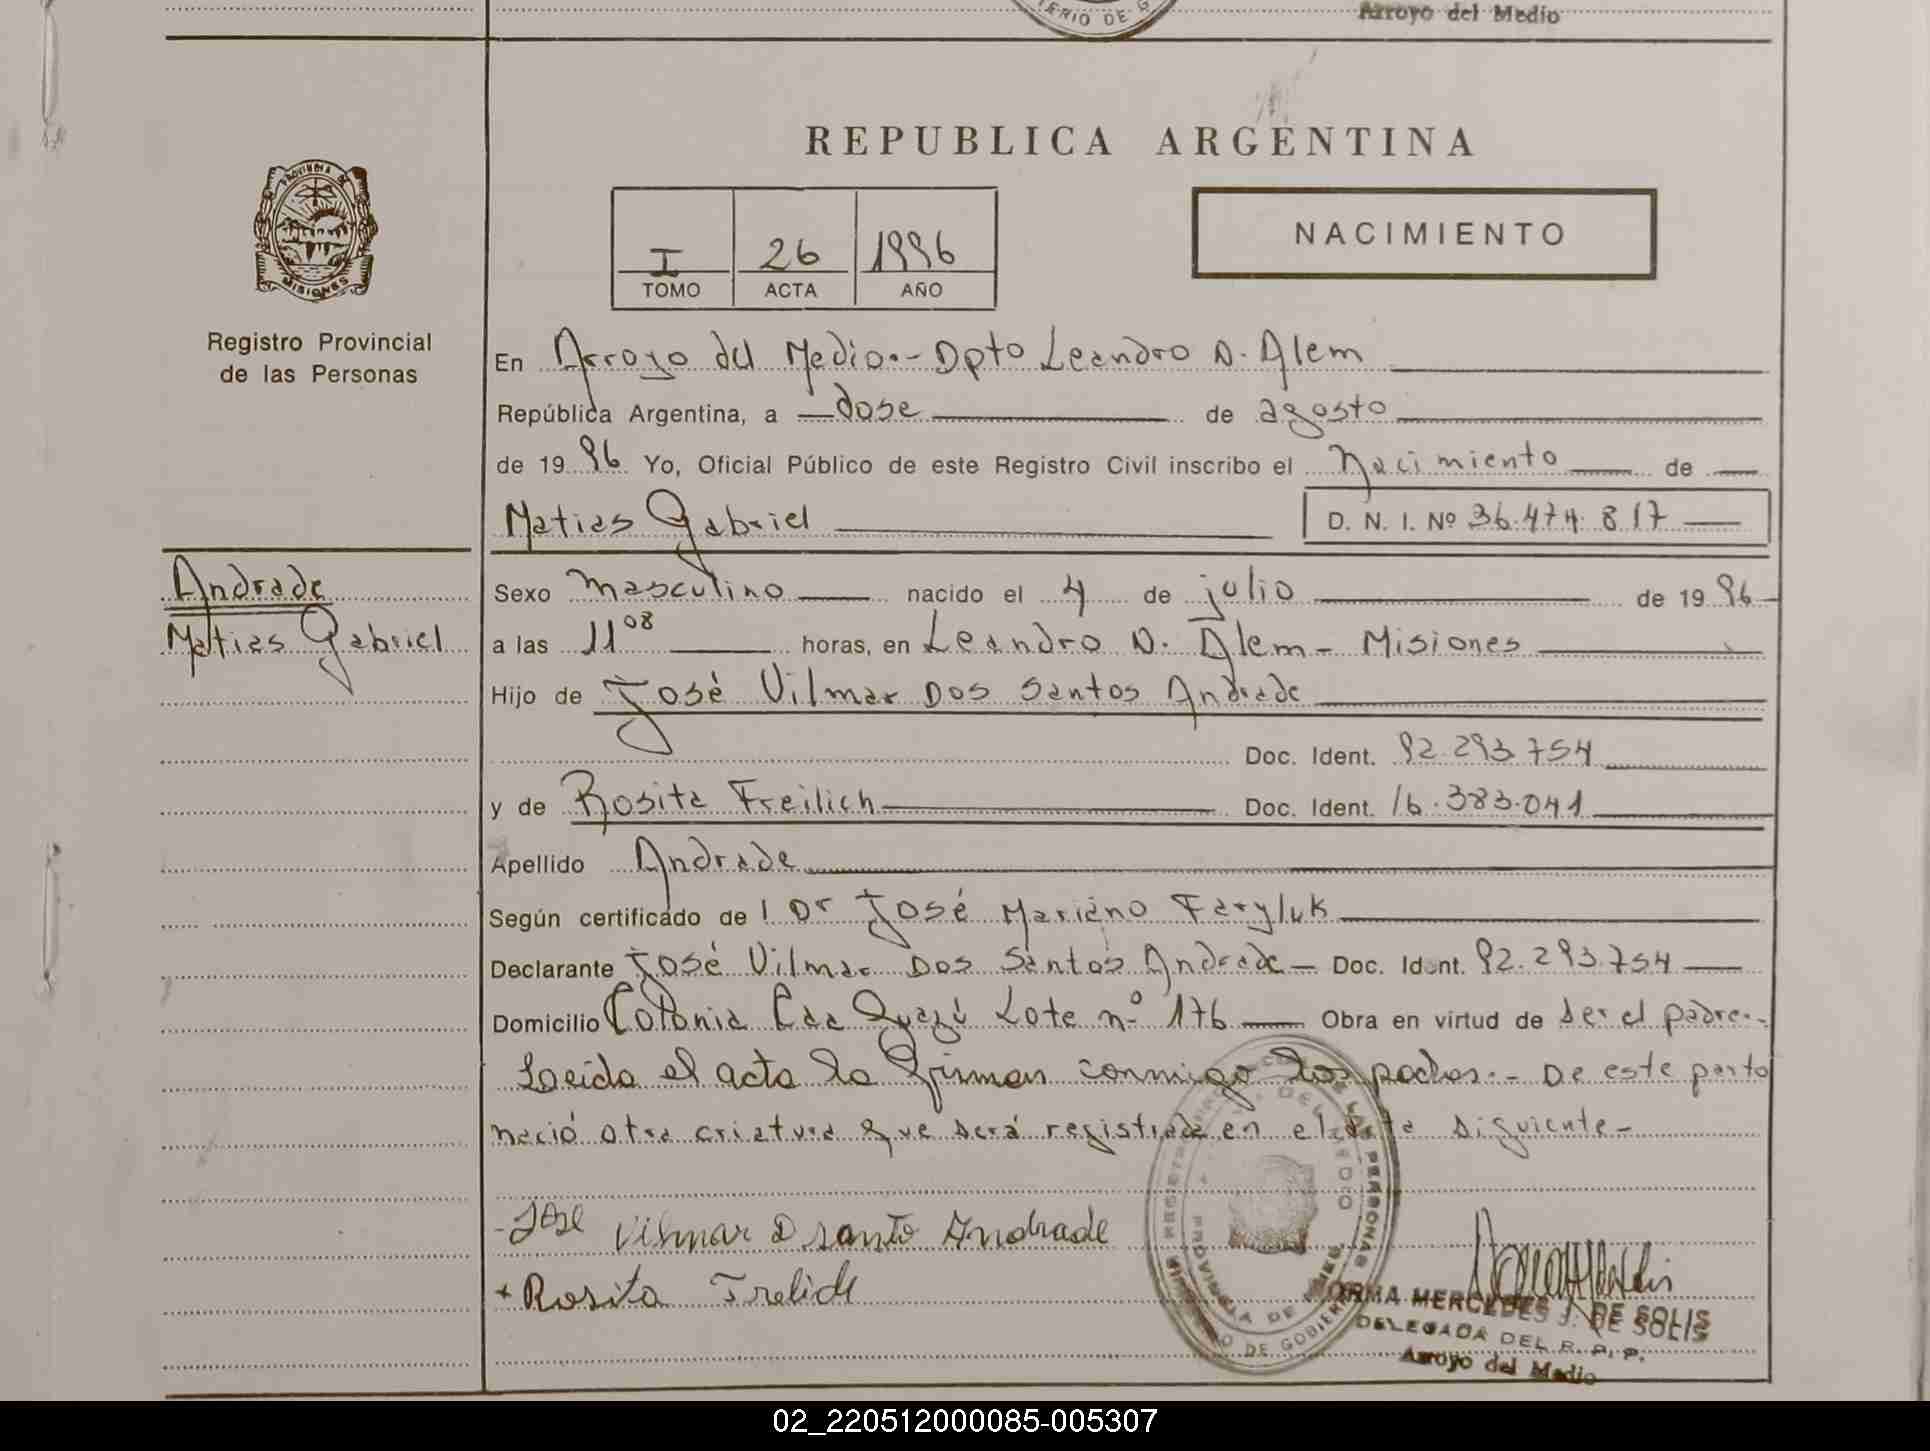 Arroyo del Medio
REPUBLICA ARGENTINA
NACIMIENTO
I 26 1996
TOMO ACTA AÑO
PROVINCIA DE
MISIONES
Registro Provincial
de las Personas
En Arroyo del Medio.- Dpto Leandro N. Alem
República Argentina, a dose de agosto
de 1996 Yo, Oficial Público de este Registro Civil inscribo el Nacimiento de
Matias Gabriel D. N. I. Nº 36.474.817
Andrade
Matias Gabriel
Sexo Masculino nacido el 4 de julio de 1996
a las 11 08 horas, en Leandro N. Alem - Misiones
Hijo de José Vilmar Dos Santos Andrade
Doc. Ident. 92.293.754
y de Rosita Freilich Doc. Ident. 16.383.041
Apellido Andrade
Según certificado de l Dr José Mariano Faryluk
Declarante José Vilmar Dos Santos Andrade - Doc. Ident. 92.293.754
Domicilio Colonia Caa Guazú Lote nº 176 Obra en virtud de ser el padre.-
Leida el acta la firman conmigo los padres.- De este parto
nació otra criatura que será registrada en el acta siguiente-
- José Vilmar D santo Andrade
+ Rosita Frelich
NORMA MERCEDES J. DE SOLIS
DELEGADA DEL R. P. P.
Arroyo del Medio
02_220512000085-005307